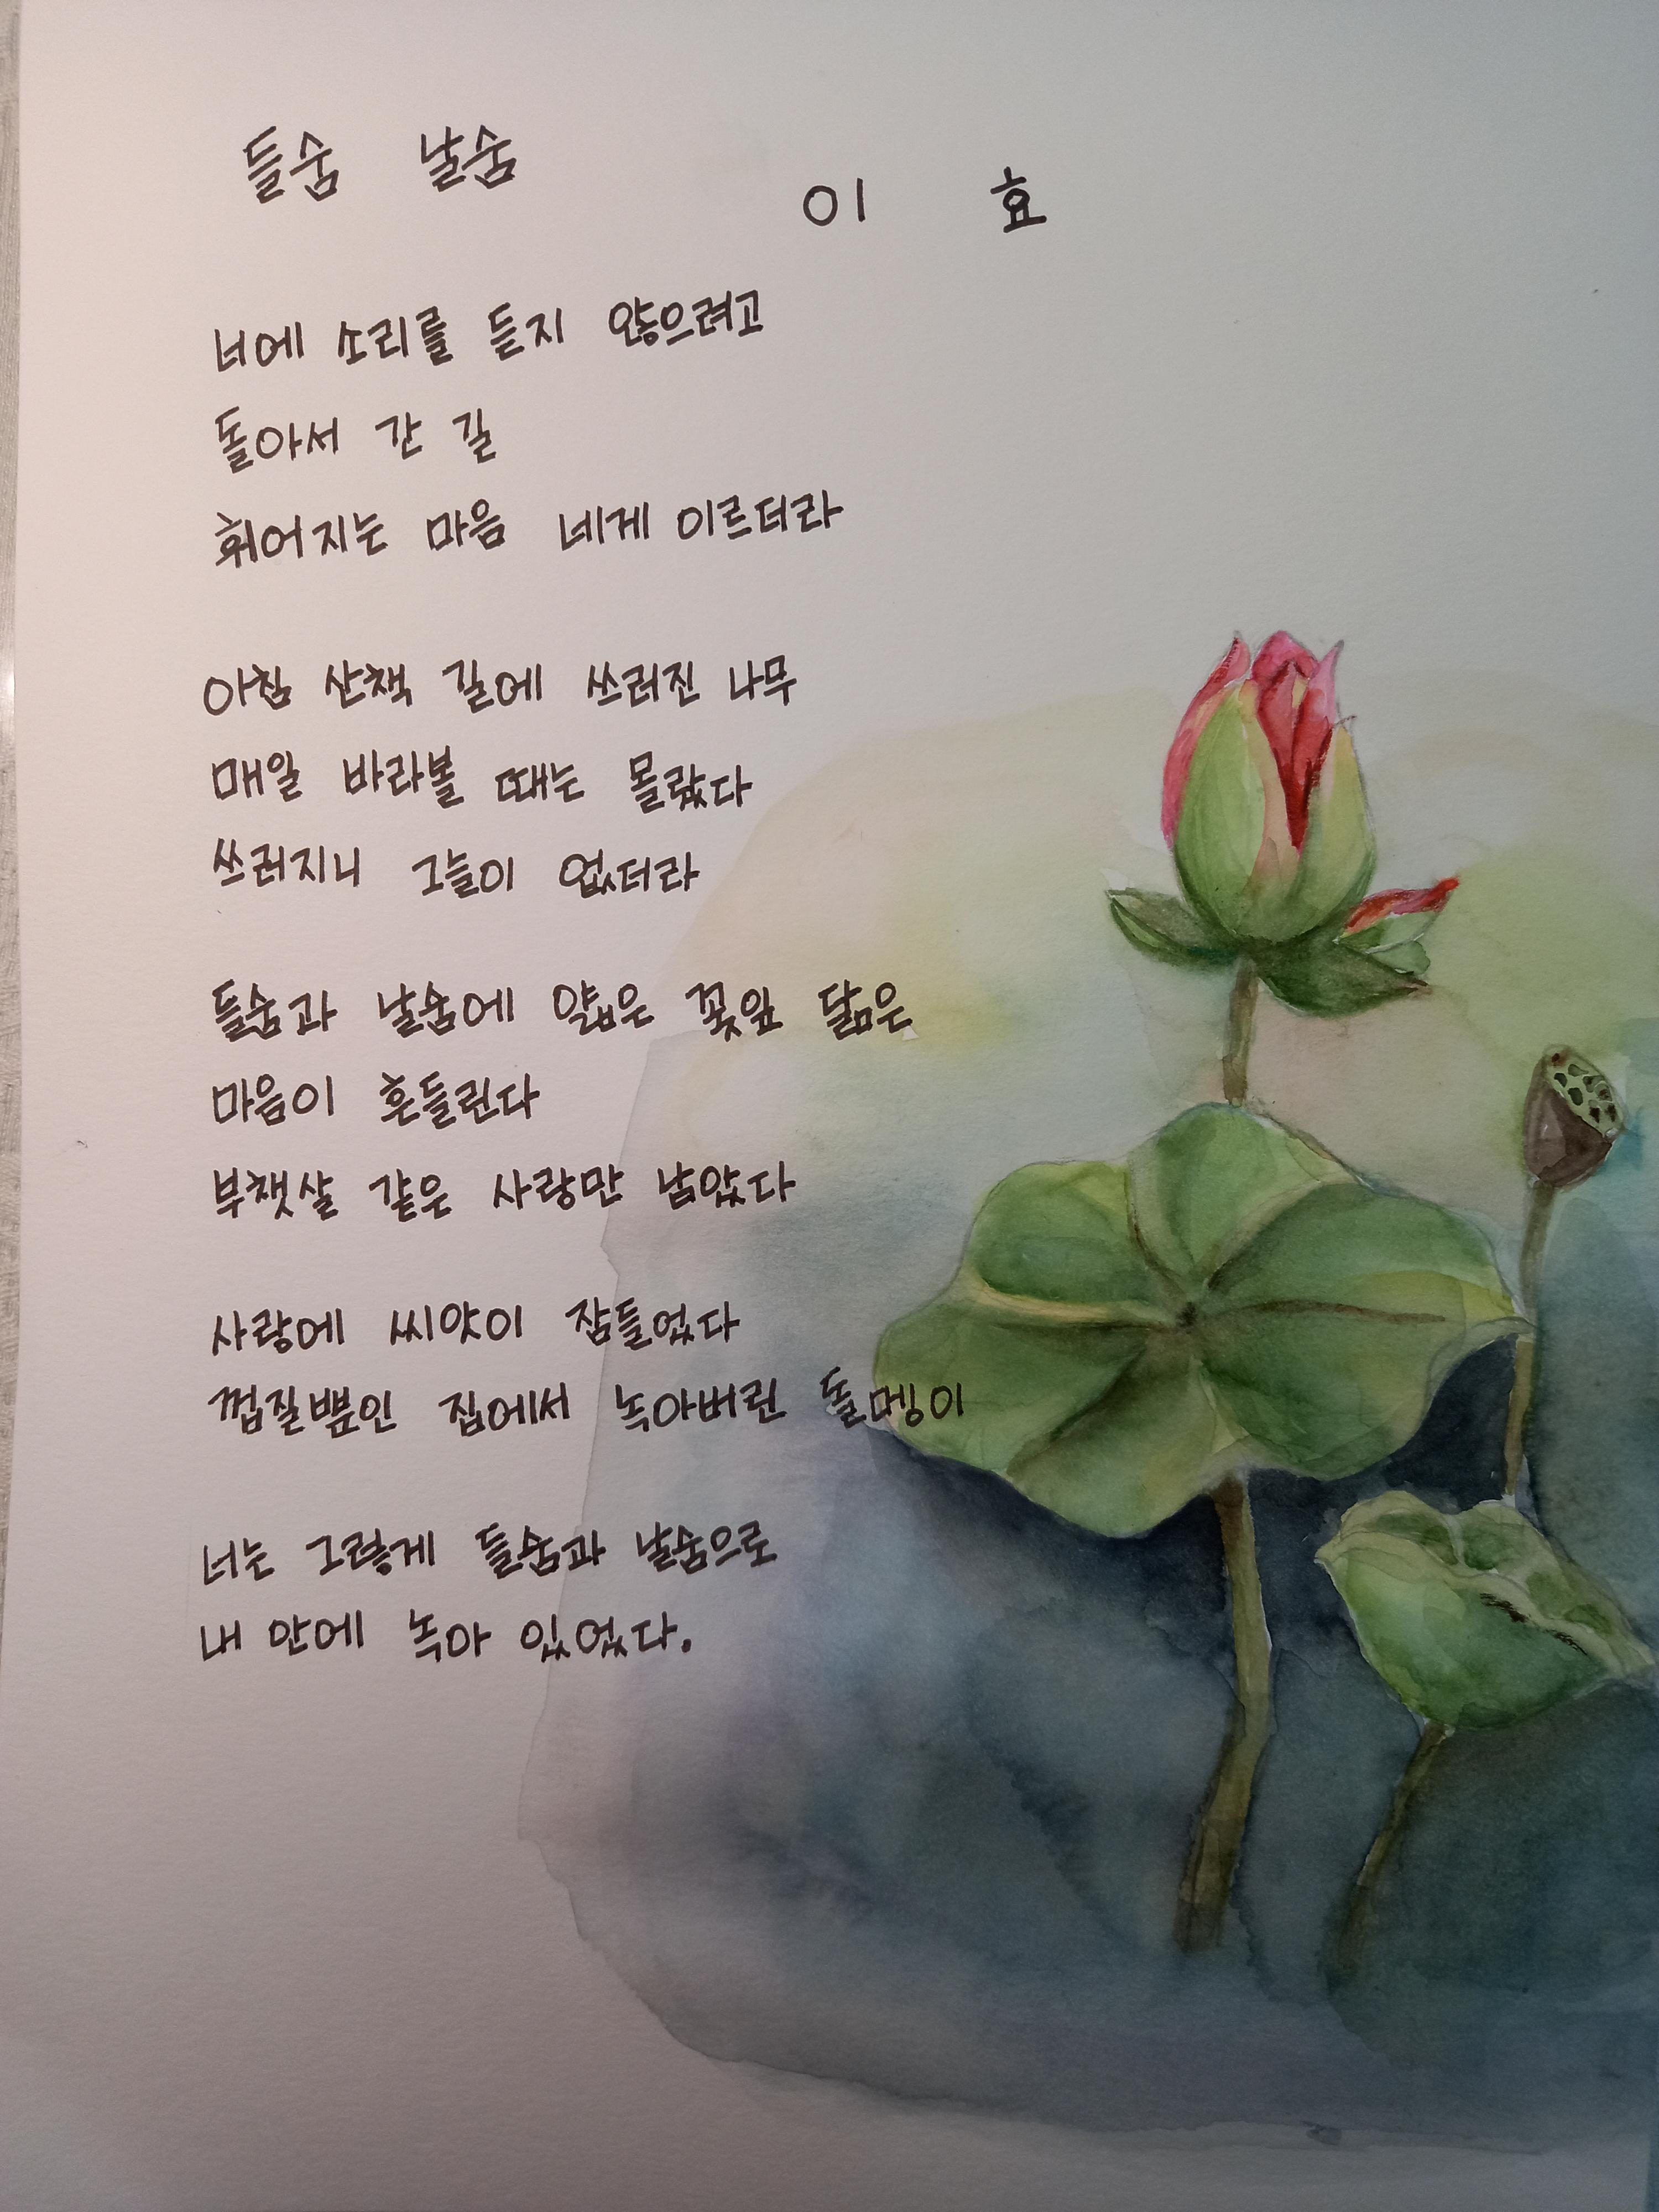 들숨 날숨
이 효
너에 소리를 듣지 않으려고
돌아서 간 길
휘어지는 마음 네게 이르더라
아침 산책 길에 쓰러진 나무
매일 바라볼 때는 몰랐다
쓰러지니 그늘이 없더라
들숨과 날숨에 얇은 꽃잎 닮은
마음이 흔들린다
부챗살 같은 사랑만 남았다
사랑에 씨앗이 잠들었다
껍질뿐인 집에서 녹아버린 돌멩이
너는 그렇게 들숨과 날숨으로
내 안에 녹아 있었다.